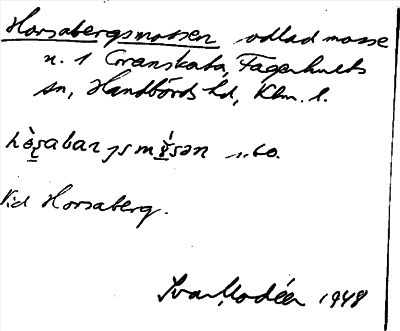 Horsabergsmossen odlad mosse
n. 1 Granskata, Fagerhults
sn, Handbörds hd, Klm. l.
hòrsabarjsmósən
Vid Horsaberg.
Ivar Modéer 1948